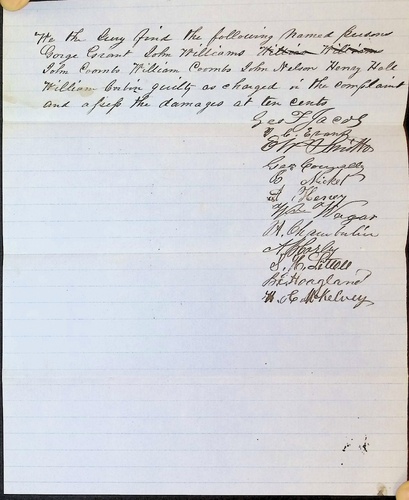 We the Jury find the following Named Persons
Gorge Grant John Williams
John Coombs William Coombs John Nelson Henry Hall
William guilty as charged in the complaint
and assess the damages at ten cents
Geo F Jacobs
C. Evans
O W Smith
Geo
C Nickel
A. Hervey
Wm Wagar
H. Chamberlin
N Harby
S. H. Littell
Hoagland
H. C McKelvey